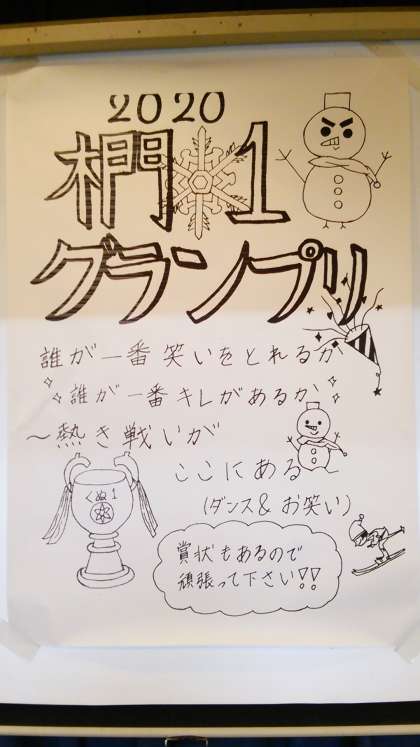 2020
椚1
グランプリ
誰が一番笑いをとれるか
誰が一番キレがあるか
〜熱き戦いが
ここにある〜
(ダンス&お笑い)
くぬ1
賞状もあるので
頑張って下さい!!